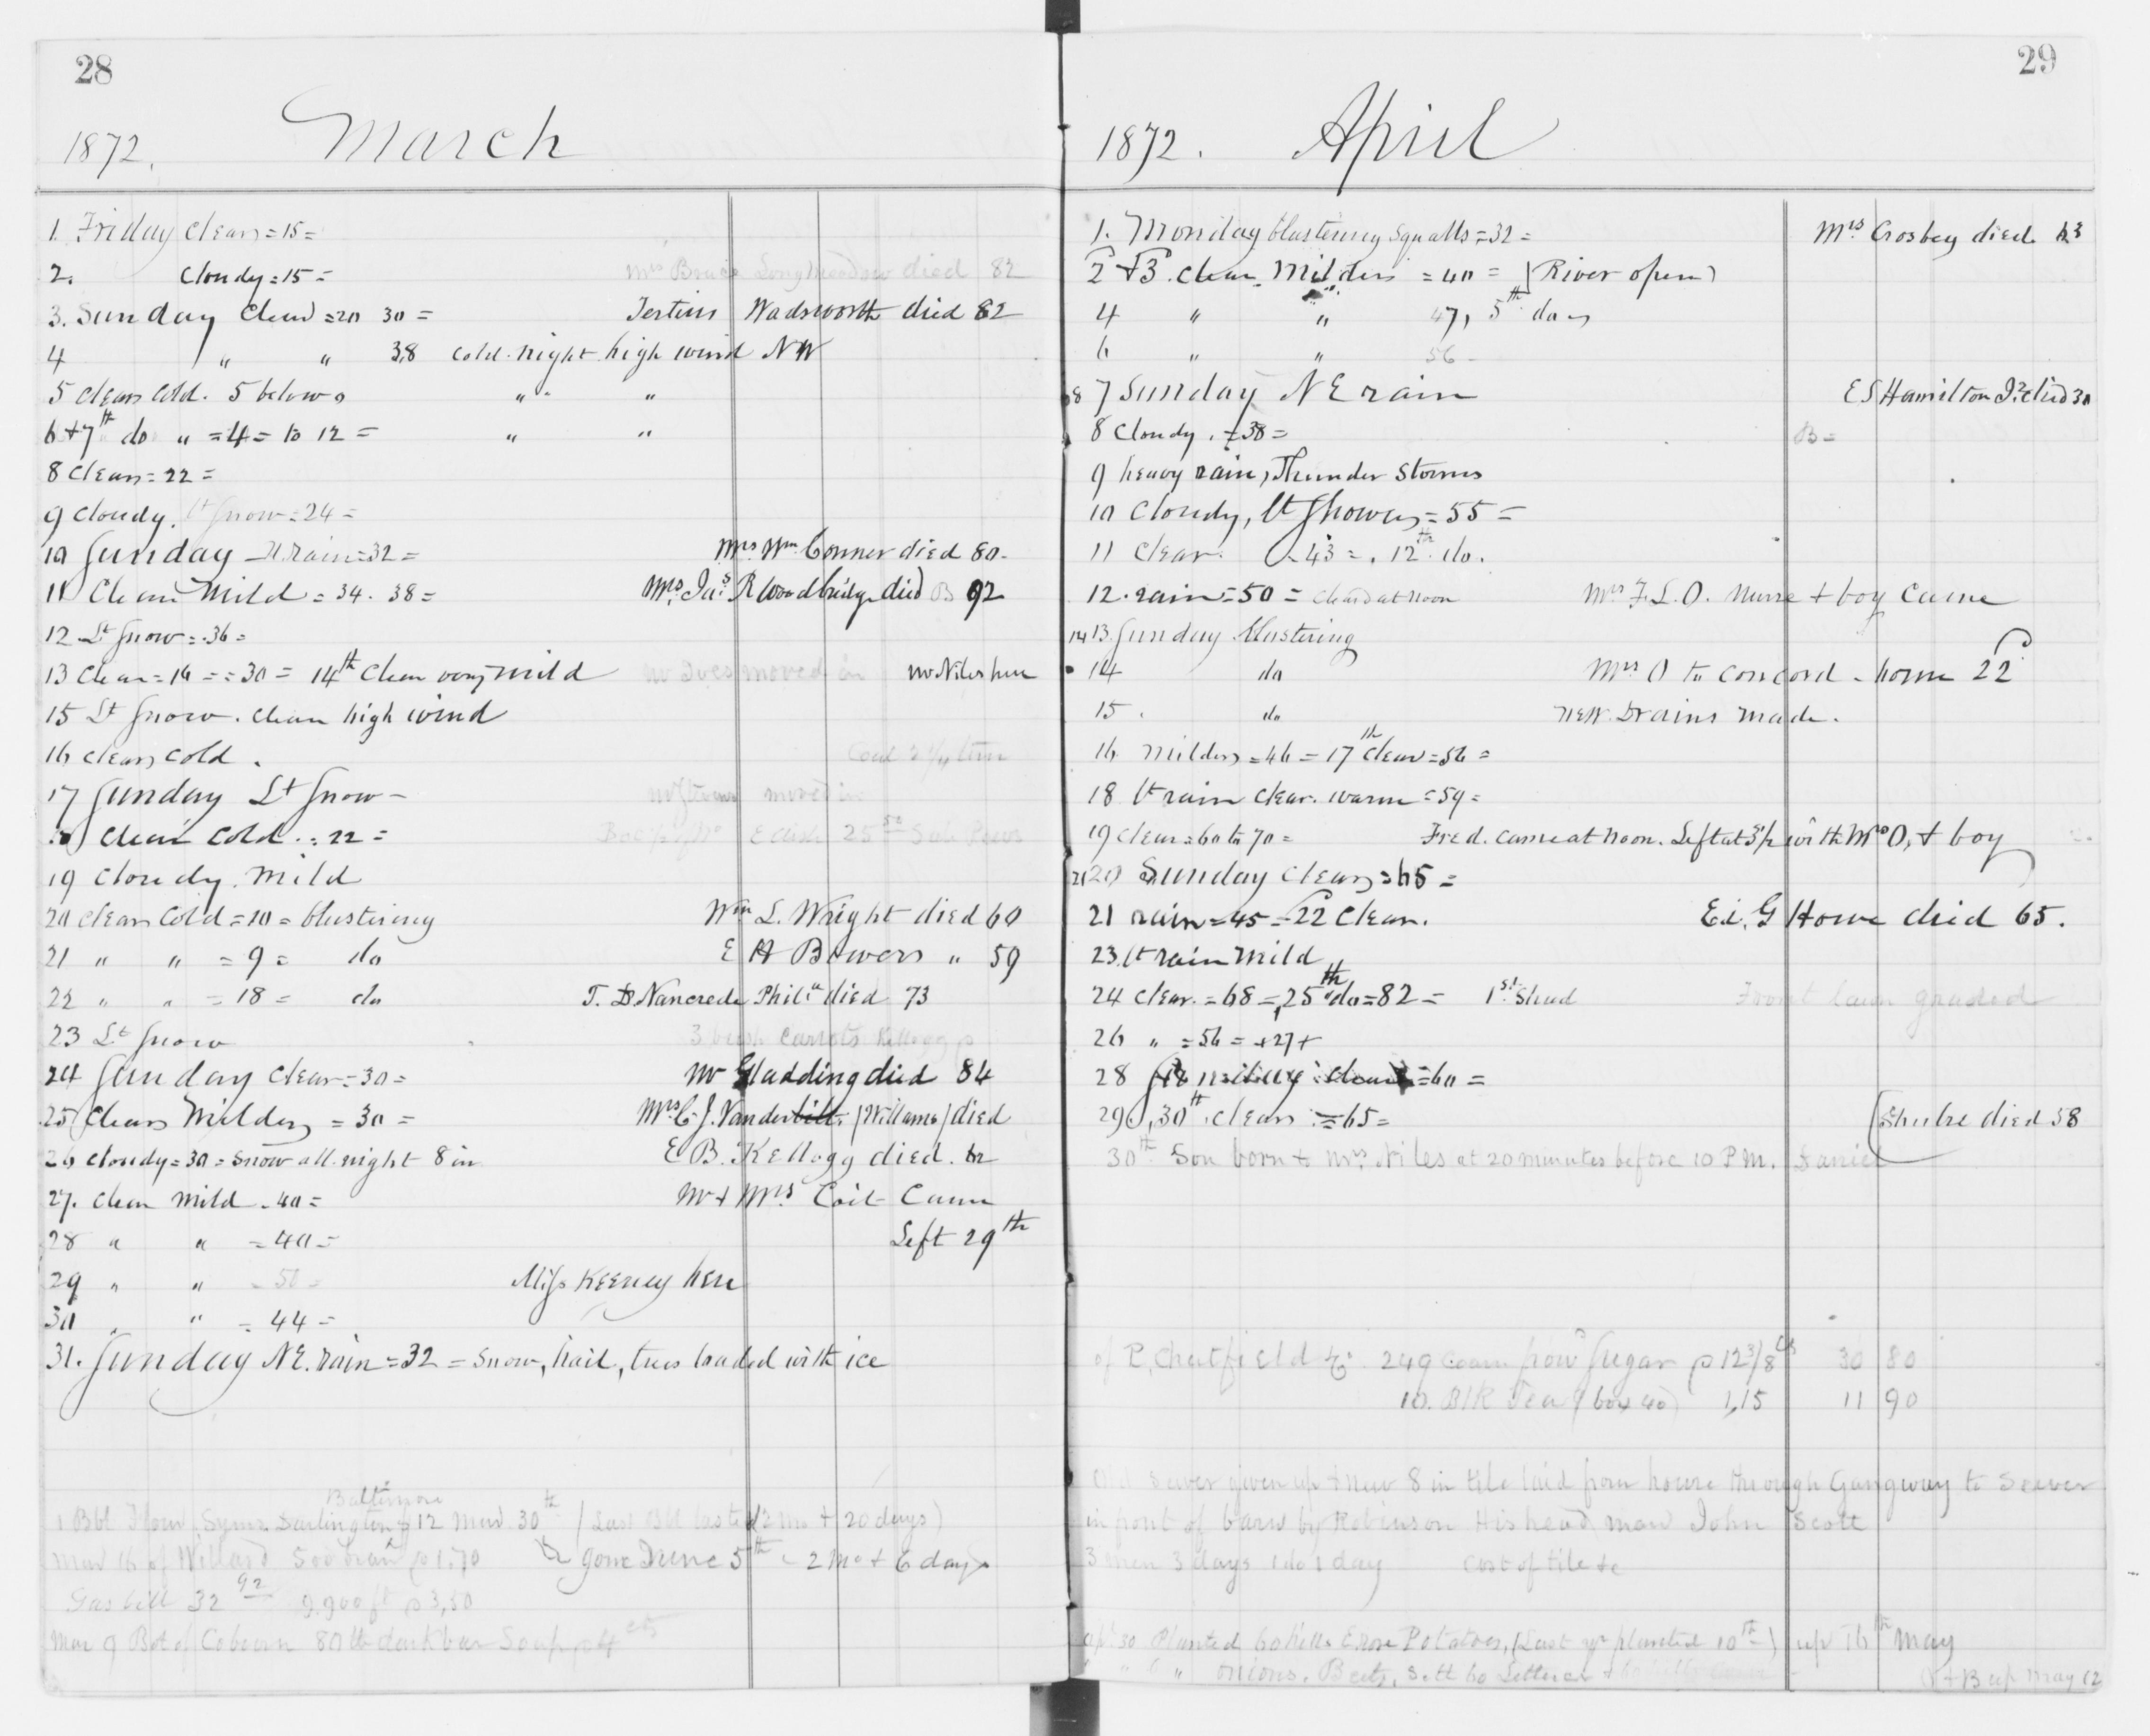 28
1872. March
1. Friday Clear = 15 =
2. Cloudy = 15 = Mrs Bruce Longmeadow died 82
3. Sunday Clear = 20 30 = Tertius Wadsworth died 82
4 " " 38 cold night high wind NW
5 Clear Cold. 5 below 0 " "
6 + 7th do " = 4 = to 12 = " "
8 Clear = 22 =
9 Cloudy. Lt Snow = 24 =
10 Sunday - rain = 32 = Mrs Wm Conner died 80.
11 Clear Mild = 34. 38 = Mrs Jas R Woodbridge died B 92
12 Lt Snow = 36 =
13 Clear = 16 = = 30 = 14th Clear very mild Mr Ives moved in Mr Niles here
15 Lt Snow. Clear high wind
16 Clear Cold. Coal 2 1/4 tons
17 Sunday Lt Snow - moved in
18 Clear Cold. = 22 = 25
19 Cloudy. Mild
20 Clear Cold = 10 = blustering Wm L. Wright died 60
21 " " = 9 = do E H Bowers " 59
22 " " = 18 = do T. D Nancrede Phila died 73
23 Lt Snow 3 bush Carrots Kellogg
24 Sunday Clear = 30 = Mr Gladding died 84
25 Clear Milder = 30 = Mrs C. J. Vanderbilt (Williams) died
26 Cloudy = 30 = Snow all night 8 in E B. Kellogg died. 62
27. Clear Mild - 40 = Mr + Mrs Coit Came
28 " " = 40 = Left 29th
29 " " = 50 = Miss Keeney here
30 " " = 44 =
31. Sunday NE. rain = 32 = Snow, hail, trees loaded with ice
Baltimore
1 Bbl Flour, Darlington 12 Mar 30th (Last Bbl lasted 2 mo + 20 days)
Mar 16 of Willard 500 bran 1.70 gone June 5th - 2 Mo + 6 days
Gas bill 32 92 9.900 ft 3,50
Mar 9 Bot of Coburn 80 lb dark bar Soap 4 cts
29
1872. April
1. Monday blustering Squalls = 32 = Mrs Crosbey died 63
2 + 3. Clear. Milder = 40 = (River open)
4 " " 47, 5th do
6 " " 56 -
7 Sunday NE rain E S Hamilton Jr died 30
8 Cloudy. = 38 = B =
9 heavy rain, Thunder Storms
10 Cloudy, Lt Showers = 55 =
11 Clear. = 43 =. 12th do.
12. rain = 50 = Cleard at noon Mrs F. L. O. Nurse + boy Came
14 13. Sunday blustering
14 do Mrs O to Concord - home 22
15. do New Drains made.
16 Milder = 46 = 17th Clear = 56 =
18 Lt rain Clear. warm = 59 =
19 Clear = 60 to 70 = Fred. Came at noon. Left at 3 1/2 with Mrs O, + boy
21 20 Sunday Clear = 65 =
21 rain = 45 = 22 Clear. Ed. G Howe died 65.
23. Lt rain Mild
24 Clear. = 68 =, 25th do = 82 = 1st Shad Front lawn graded
26 " = 56 = + 27 +
28 Clear = 60 =
29, 30th. Clear = 65 = died 58
30th Son born to Mrs Niles at 20 minutes before 10 P M. Daniel
of P. Chatfield & Co. 249 pow Sugar p 12 3/8 cts 30 80
10. Blk Tea (box 40) 1,15 11 90
Old Sewer given up + New 8 in tile laid from house through Gangway to Sewer
in front of barn by Robinson His head man John Scott
3 men 3 days 1 do 1 day Cost of tile &c
Apl 30 Planted 60 hills Potatoes, (Last yr planted 10th) up 16th May
" " onions. Beets, Sett 60 Lettuce B up May 12